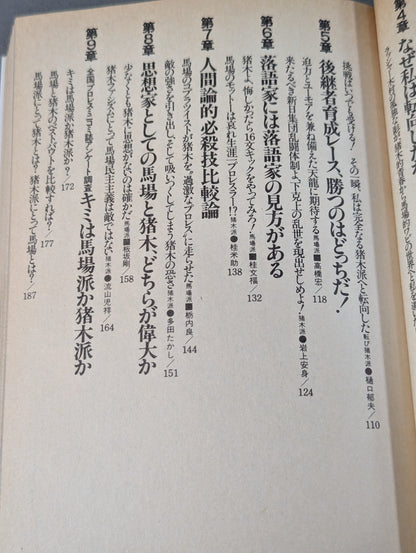 第4章
なぜ私は転向したか
挑戦はいつでも受ける！ その一瞬、私は完全なる猪木派へと転向した 転び猪木派●樋口郁夫／110
第5章
後継者育成レース、勝つのはどっちだ！
迫力とユーモアを兼ね備えた天龍に期待する 馬場派■高橋宏／118
来たるべき新日集団共闘体制よ、下克上の乱世を現出せしめよ！ 猪木派●岩上安身／124
第6章
落語家には落語家の見方がある
猪木よ、悔しかったら16文キックをやってみろ！ 馬場派■桂文福／132
馬場のモットーは哀れ生涯一プロレスラー!? 猪木派●桂米助／138
第7章
人間論的必殺技比較論
馬場のコブラツイストが猪木を〝過激なプロレス〟に走らせた 馬場派■栃内良／144
敵の強さを引き出し、そして吸いつくしてしまう猪木の恐さ 猪木派●多田たかし／151
第8章
思想家としての馬場と猪木、どちらが偉大か
少なくとも猪木に思想がないのは確かだ 馬場派■板坂剛／158
猪木ファシズムにとって馬場民主主義は敵ではない 猪木派●流山児祥／164
第9章
全国プロレスミニコミ誌アンケート調査
キミは馬場派か猪木派か
キミは馬場派か猪木派か？／172
馬場と猪木のベストバウトを比較すれば？／177
馬場派にとって猪木とは？ 猪木派にとって馬場とは？／187